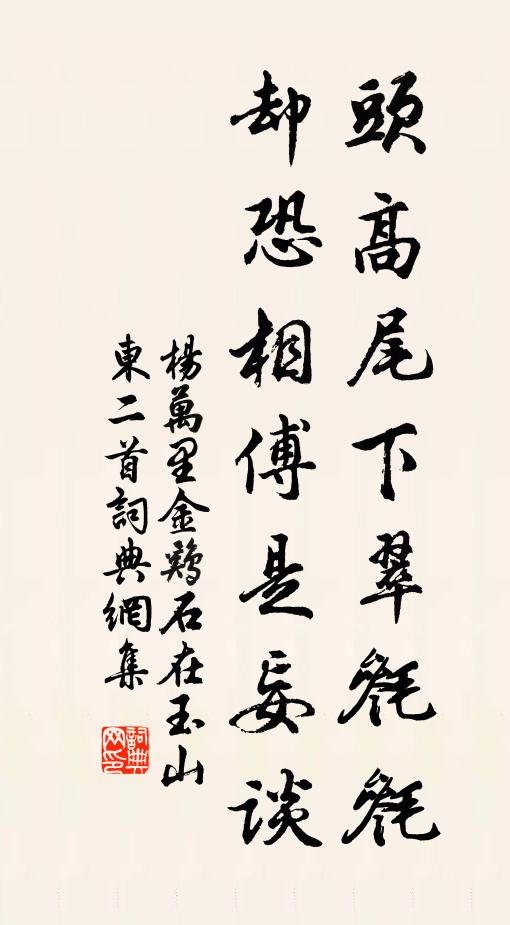 頭高尾下翠毿毿
却恐相傅是妄談
楊萬里金鷄石在玉山
東二首詞典網集
詞典網印